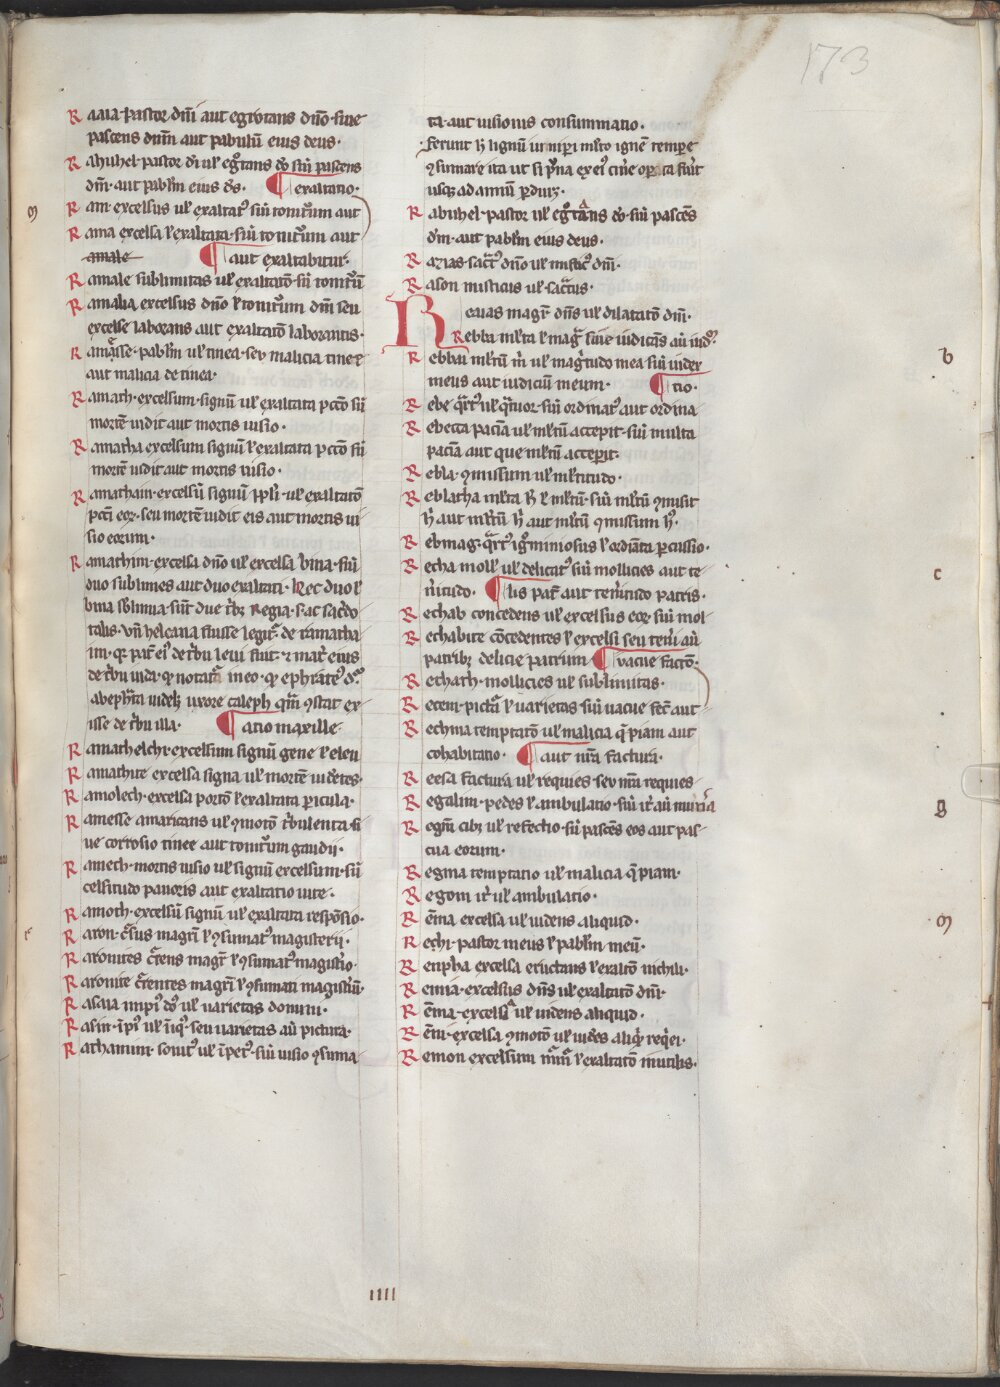 173
Raaia·pastor dñi aut egrotans dño·siue
pascens dnm̄ aut pabulū eius deus·
Rahuhel·pastor di ul' eg̃tans do siū pascens
dm̄·aut pablm̄ eius ds̄· ¶ exaltatio·
Ram·excelsus ul' exaltat᷒ siū tonit᷒um aut
Rama excelsa l' exaltata·siū tonit᷒um aut
amale ¶ aut exaltabitur·
Ramale sublimitas ul' exaltatō·siū tonitrū
Ramalia excelsus dño l' tonit᷒um dm̄ seu
excelse laborans aut exaltatō laborantis·
Ramasse·pablm̄ ul' tinea·seu malicia tinee
aut malicia de tinea·
Ramath·excelsum·signū ul' exaltata pctō siū
mortē uidit aut mortis uisio·
Ramatha excelsum signū l' exaltata pctō siū
mortē uidit aut mortis uisio·
Ramathaim·excelsū signū ppl'i·ul' exaltatō
pcti eor·seu mortē uidit eis aut mortis ui
sio eorum·
Ramathim·excelsa dño ul' excelsa bina·siū
duo sublimes aut duo exaltati·hec duo l'
bina sblimia·sūt due t'b᷒ Regia·s·ac sacdo
talis·vn̄ helcana fuisse legit᷒ de ramatha
im·q᷒ pat᷒ ei᷒ de t'bu leui fuit·⁊ mat᷒ eius
de t'bu iuda·q᷒ notat᷒ in eo·q᷒ ephrate᷒ d᷒
ab ephrata uidel᷒ uxore caleph qm̄ ꝯstat ex
isse de t'bu illa· ¶ atio maxille·
Ramathelchi·excelsum signū gene l' eleu
Ramathite excelsa signa ul' mortē uidētes·
Ramolech·excelsa portō l' exaltata pericula·
Ramesse amaricans ul' ꝯmotō t'bulenta·si
ue corrosio tinee aut tonit᷒um gaudii·
Rameth·mortis uisio ul' signū excelsum·siū
celsitudo pauoris aut exaltatio uite·
Ramoth·excelsū signū ul' exaltata respōsio·
Raron·c̄sus magr̄i l' ꝯsumat᷒ magisterii·
Raronites c̄tens magr̄ l' ꝯsumat᷒ magistio·
Raronite c̄tentes magr̄i l' ꝯsumati magistiū·
Rasaia impi᷒ ds̄ ul' uarietas domini·
Rasin·ipi᷒ ul' iiq᷒·seu uarietas aū pictura·
Rathanim·sonit᷒ ul' ipet᷒·siū uisio ꝯsuma
ta·aut uisionis consummatio·
ferunt h̄ lignū iuniperi m̄to ignē tempe
ꝯsumare ita ut si pruna ex ei᷒ cine opta fu'it
usq᷒ ad annū p̱duret·
Rabuhel·pastor ul' eg̃tans do·siū pascēs
dm̄·aut pablm̄ eius deus·
Razias·sact᷒ dño ul' mistic᷒ dm̄·
Rason misticus ul' sactus·
Reaias magr̄ dñs ul' dilatatō dm̄·
Rebba m̄lta l' magr̄ siue iudicās aū iud᷒
Rebbai m̄ltū m̄ ul' magnitudo mea siū iudex
meus aut iudiciū meum· ¶ tio·
Rebe qrt᷒ ul' qtuor·siū ordinat᷒ aut ordina
Rebecca paciā ul' m̄ltū accepit·siū multa
paciā aut que m̄ltū accepit·
Rebla·ꝯmissum ul' m̄ltitudo·
Reblatha m̄lta h̄ l' m̄ltū·siū m̄ltū ꝯmisit
h̄ aut m̄ltū h̄ aut m̄ltū ꝯmissum h᷒·
Rebmag·qrt᷒ ignominiosus l' ordiata p̱cussio·
Recha moll' ul' delicat᷒ siū mollicies aut te
n̄itudo· ¶ lis pat᷒ aut ten̄itudo patris·
Rechab concedens ul' excelsus eor·siū mol
Rechabite cōcedentes l' excelsi seu ten̄i aū
patrib᷒ delicie patrum ¶ vacue factō·
Rechath·mollicies ul' sublimitas·
Recem·picta l' uarietas siū uacue fc̄t aut
Rechma temptatō ul' malicia q̄piam aut
cohabitatio· ¶ aut nr̄a factura·
Reesa factura ul' requies·seu nr̄a requies
Regalim·pedes l' ambulatio·siū it᷒ aū mutia
Regm̄ cib᷒ ul' refectio·siū pascēs eos aut pas
cua eorum·
Regma temptatio ul' malicia q̄piam·
Regom it᷒ ul' ambulatio·
Rēma excelsa ul' uidens aliquid·
Rechi·pastor meus l' pablm̄ meū·
Renpha excelsa eructans l' exaltō nichili·
Reimia·excelsus dñs ul' exaltatō dni·
Rēma·excelsa ul' uidens aliquid·
Rēm·excelsa ꝯmotō ul' uidēs aliq᷒ req̄ei·
Remon excelsum m̄m l' exaltatō inutilis·
m
r
b
c
g
m
IIII